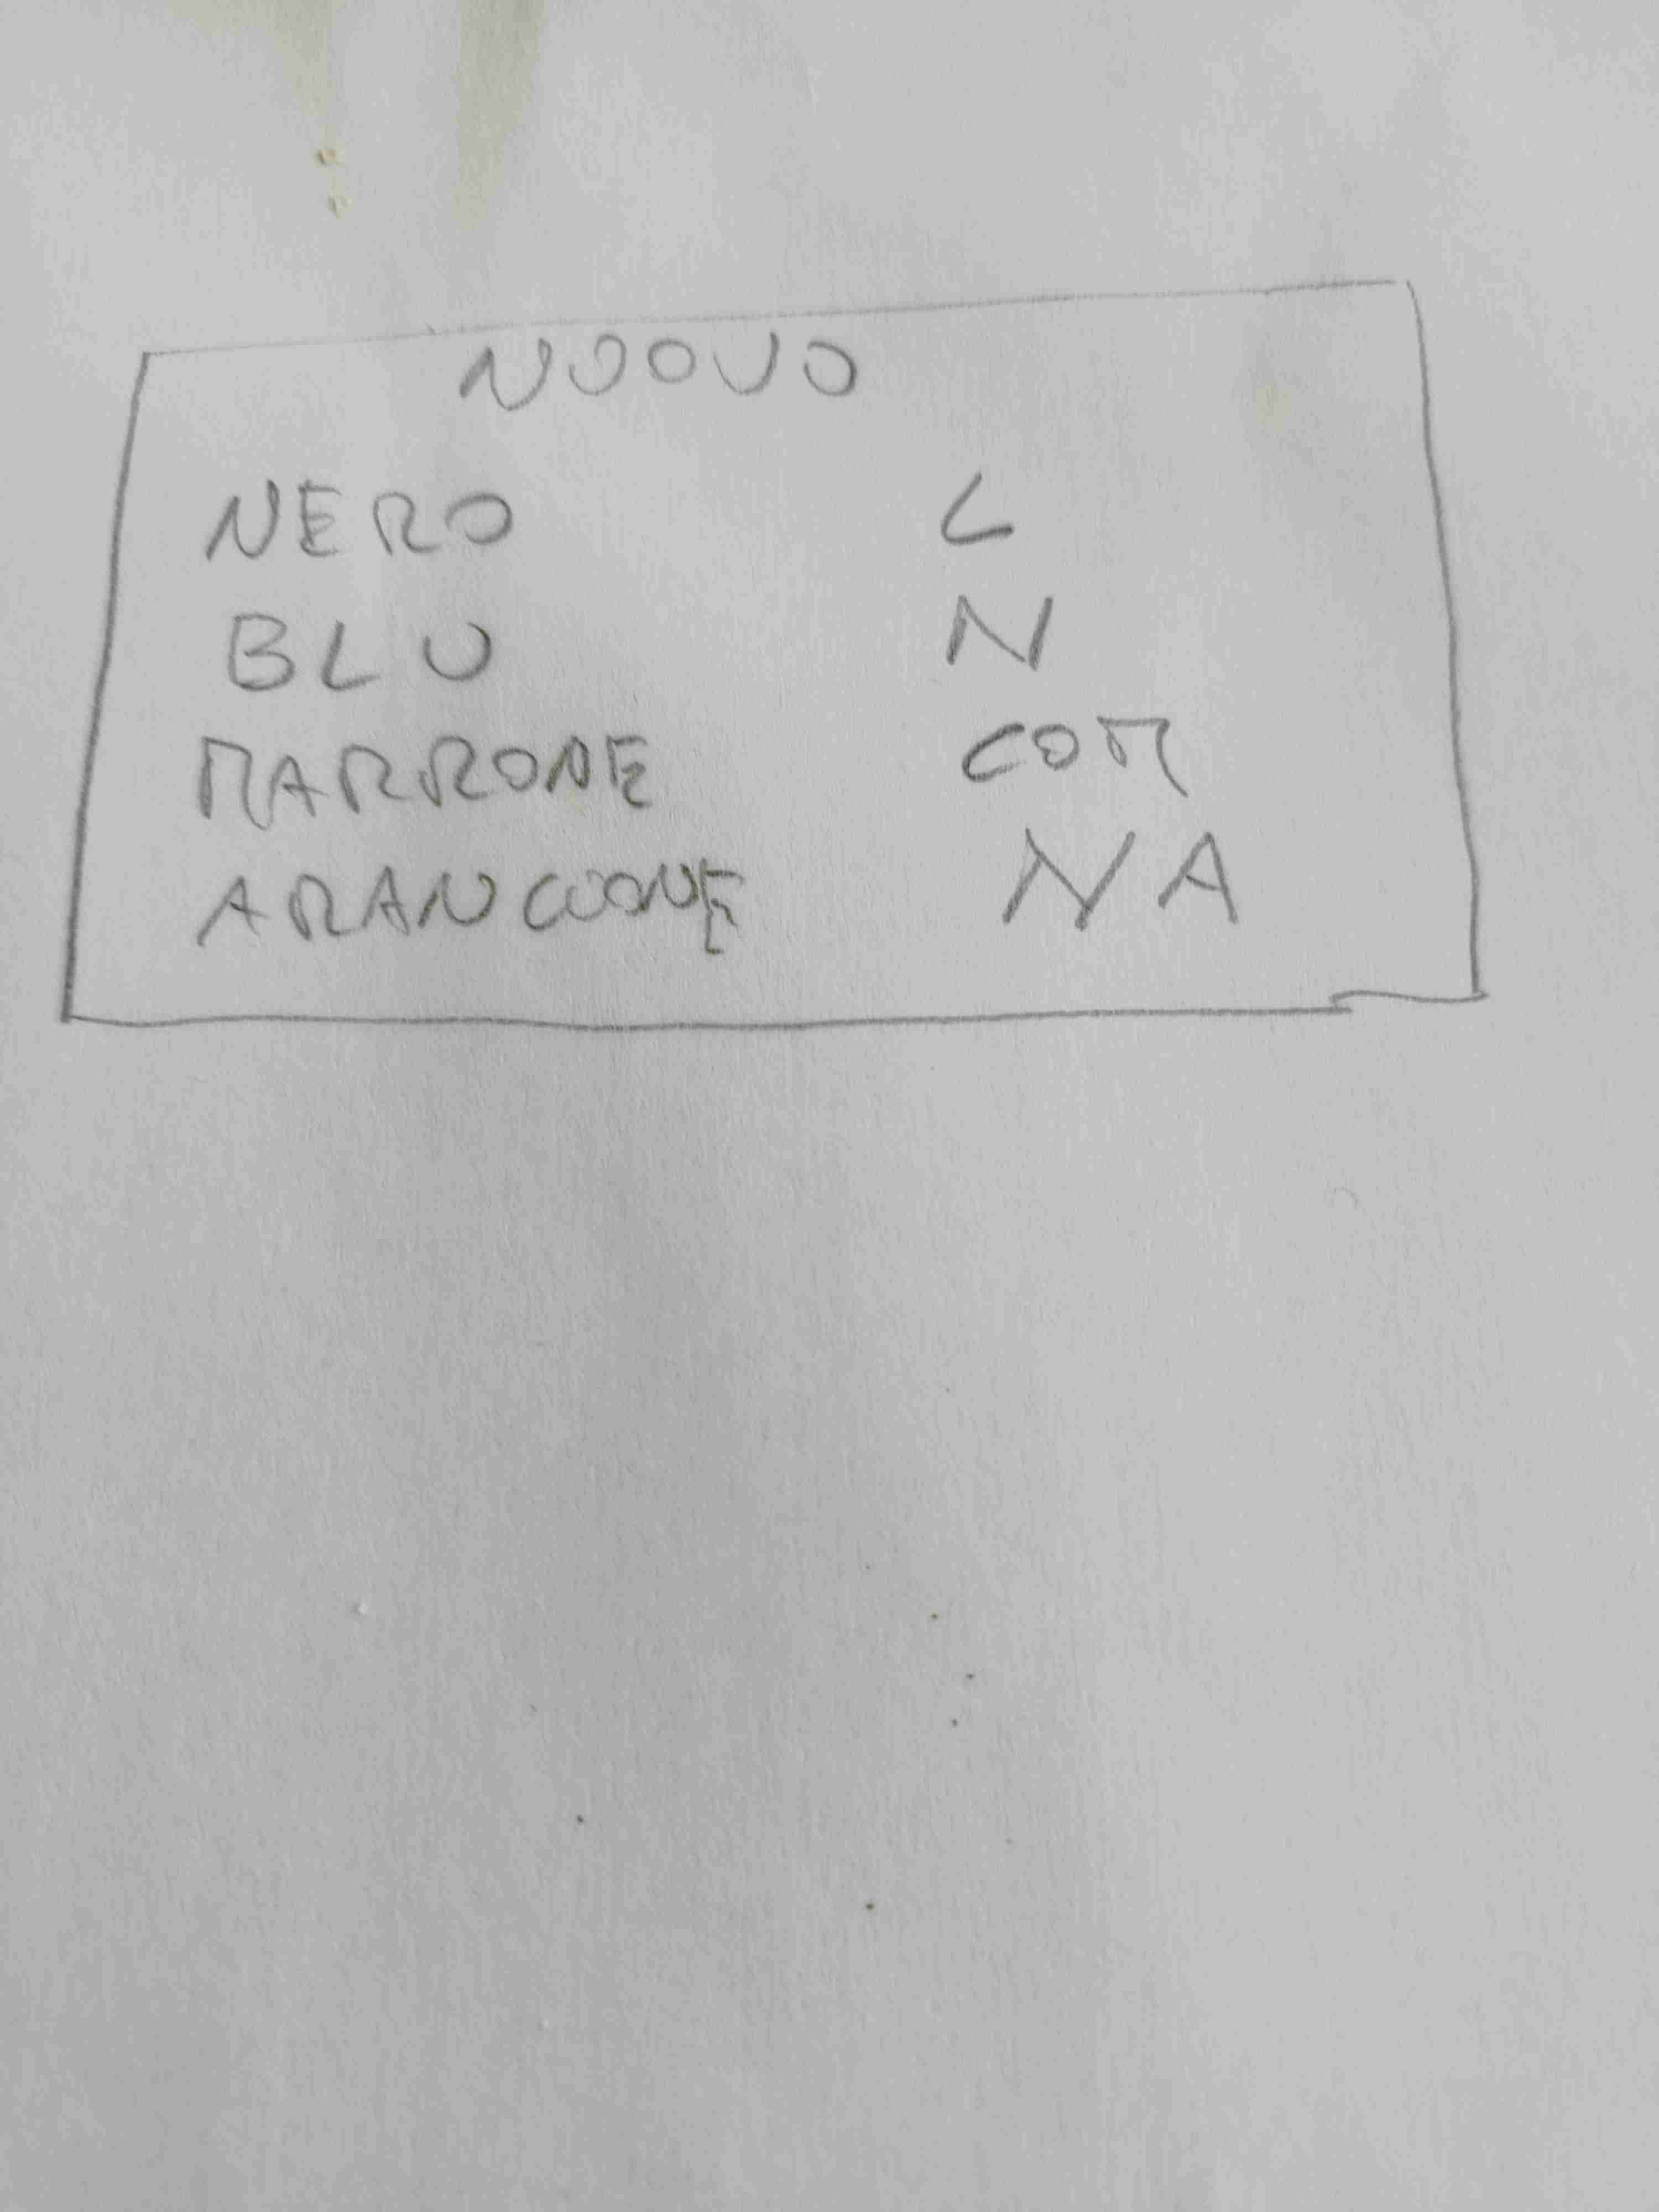 NUOVO
NERO L
BLU N
MARRONE COM
ARANCIONE NA